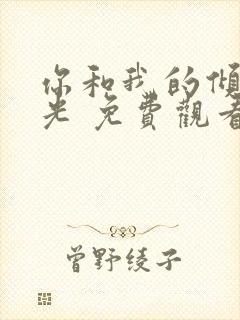 你和我的傾
光 免費觀看
曾野綾子